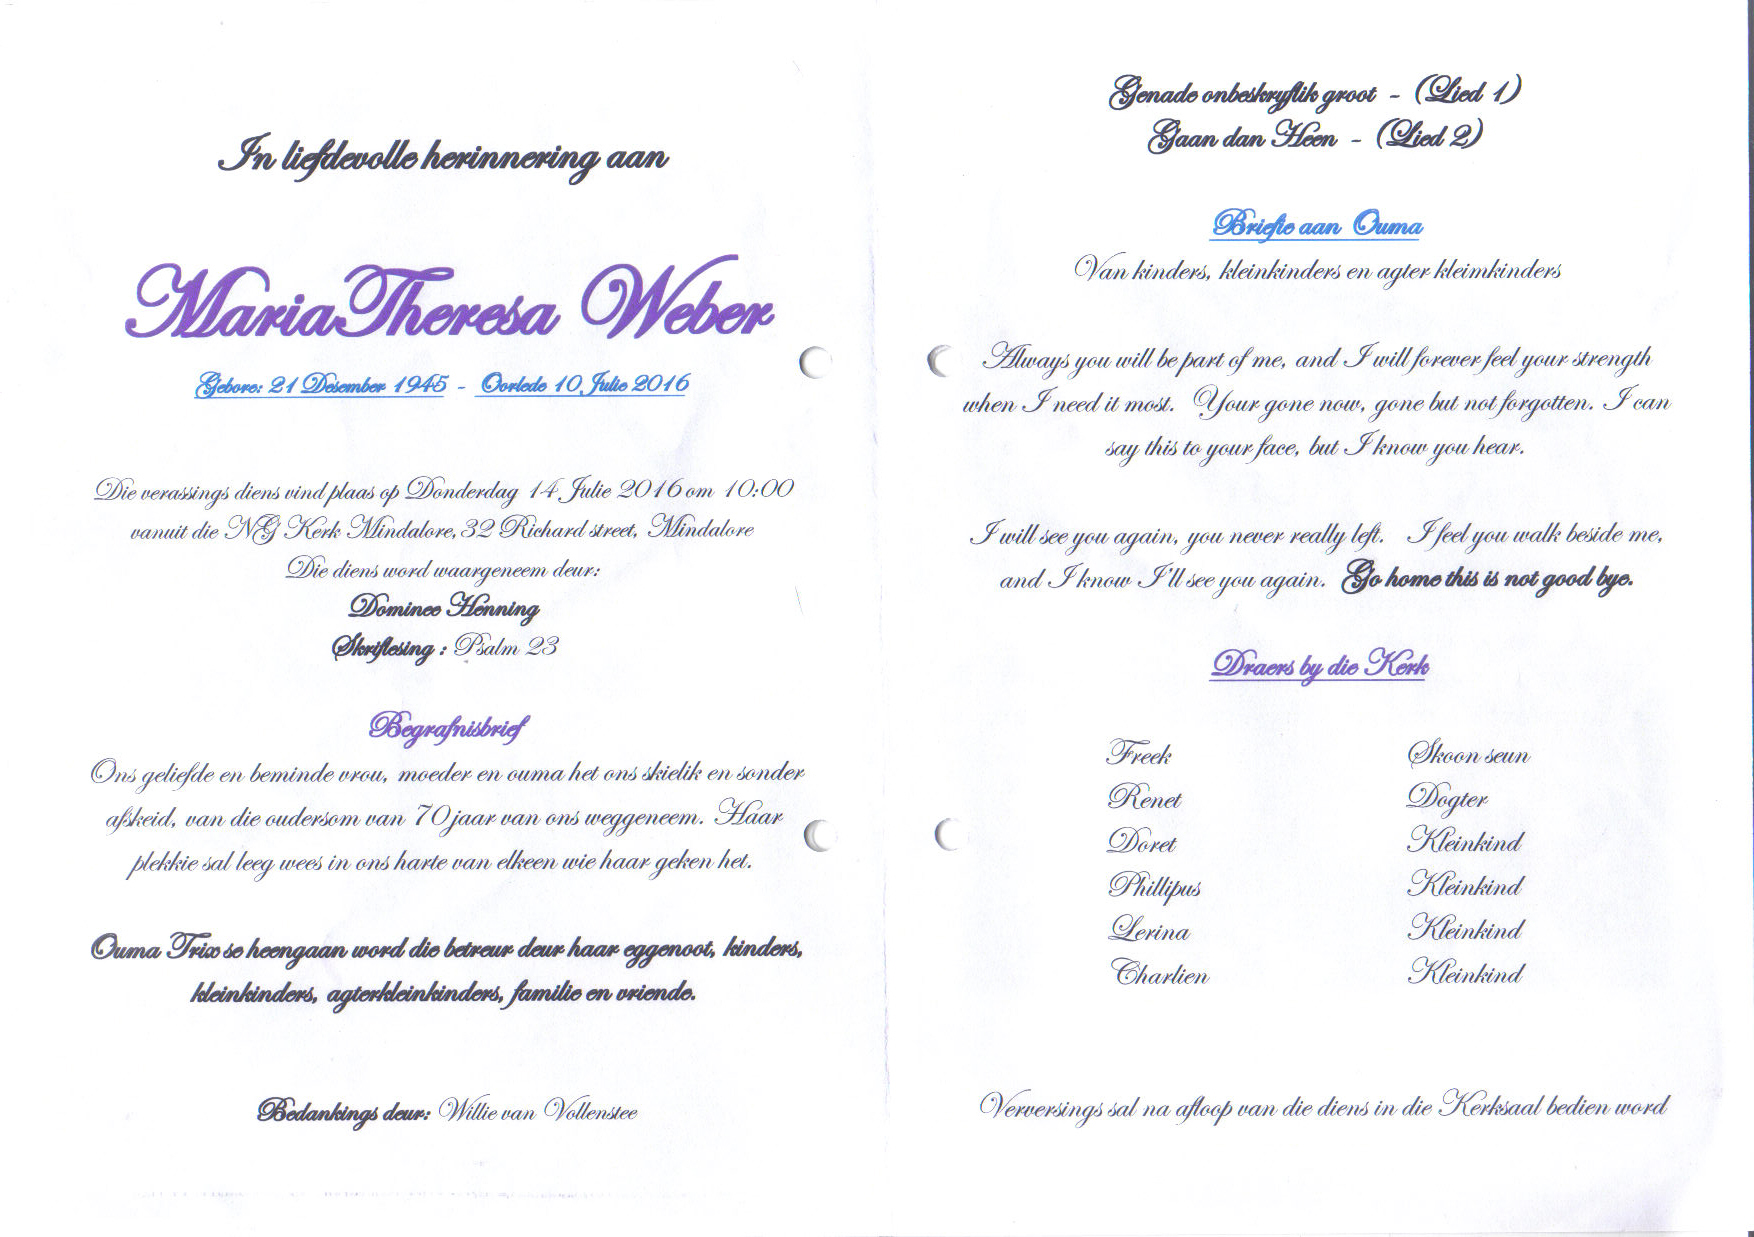 In liefdevolle herinnering aan
Maria Theresa Weber
Gebore: 21 Desember 1945 - Oorlede 10 Julie 2016
Die verassings diens vind plaas op Donderdag 14 Julie 2016 om 10:00
vanuit die NG Kerk Mindalore, 32 Richard street, Mindalore
Die diens word waargeneem deur:
Dominee Henning
Skriflesing : Psalm 23
Begrafnisbrief
Ons geliefde en beminde vrou, moeder en ouma het ons skielik en sonder
afskeid, van die oudersom van 70 jaar van ons weggeneem. Haar
plekkie sal leeg wees in ons harte van elkeen wie haar geken het.
Ouma Trix se heengaan word die betreur deur haar eggenoot, kinders,
kleinkinders, agterkleinkinders, familie en vriende.
Bedankings deur: Willie van Vollenstee
Genade onbeskryflik groot - (Lied 1)
Gaan dan Heen - (Lied 2)
Briefie aan Ouma
Van kinders, kleinkinders en agter kleimkinders
Always you will be part of me, and I will forever feel your strength
when I need it most. Your gone now, gone but not forgotten. I can
say this to your face, but I know you hear.
I will see you again, you never really left. I feel you walk beside me,
and I know I'll see you again. Go home this is not good bye.
Draers by die Kerk
Freek Skoon seun
Renet Dogter
Doret Kleinkind
Phillipus Kleinkind
Lerina Kleinkind
Charlien Kleinkind
Verversings sal na afloop van die diens in die Kerksaal bedien word